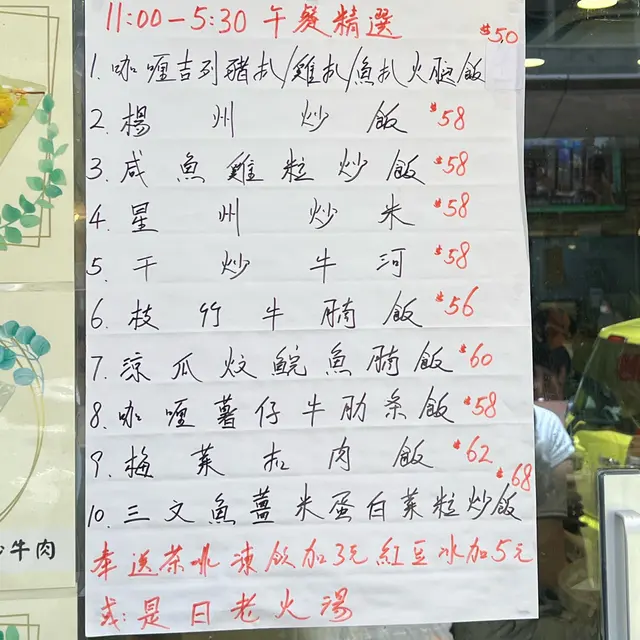 11:00-5:30 午餐精選
1. 咖喱吉列豬扒/雞扒/魚扒火腿飯 $50
2. 楊州炒飯 $58
3. 咸魚雞粒炒飯 $58
4. 星州炒米 $58
5. 干炒牛河 $58
6. 枝竹牛腩飯 $56
7. 涼瓜炆鯇魚腩飯 $60
8. 咖喱薯仔牛肋条飯 $58
9. 梅菜扣肉飯 $62
10. 三文魚薑米蛋白菜粒炒飯 $68
奉送茶啡 凍飲加3元 紅豆冰加5元
或:是日老火湯
牛肉